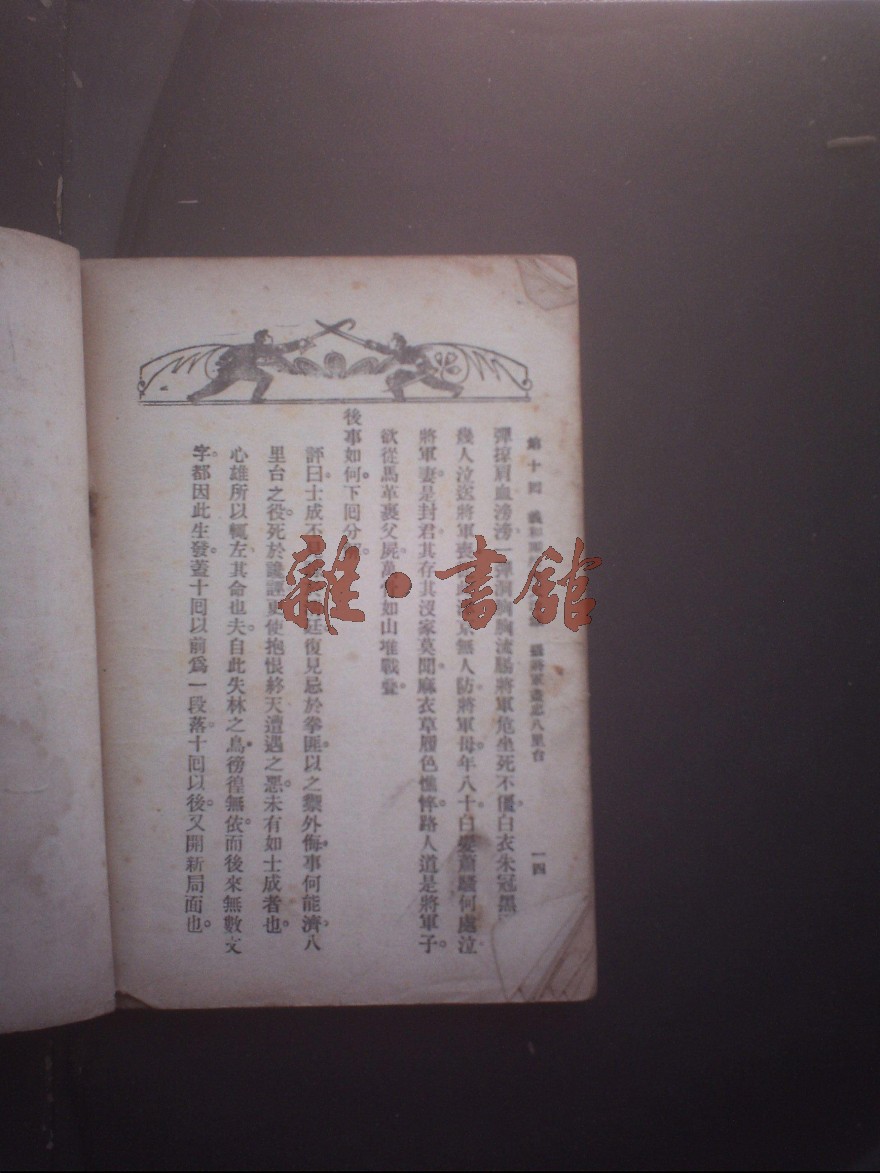 第十回 義和 聶將軍盡忠八里台
一四
彈掠肩血滂滂一 洞胸流腸將軍危坐死不僵白衣朱冠黑
幾人泣送將軍喪 無人防將軍母年八十白髮蕭騷何處泣
將軍妻是封君其存其沒家莫聞麻衣草屨色憔悴路人道是將軍子
欲從馬革裹父屍萬 如山堆戰壘
後事如何下回分
評曰士成不 廷復見忌於拳匪以之禦外侮事何能濟八
里台之役死於 更使抱恨終天遭遇之惡未有如士成者也
心雄所以輒左其命也夫自此失林之鳥徬徨無依而後來無數文
字都因此生發蓋十回以前爲一段落十回以後又開新局面也
雜·書館